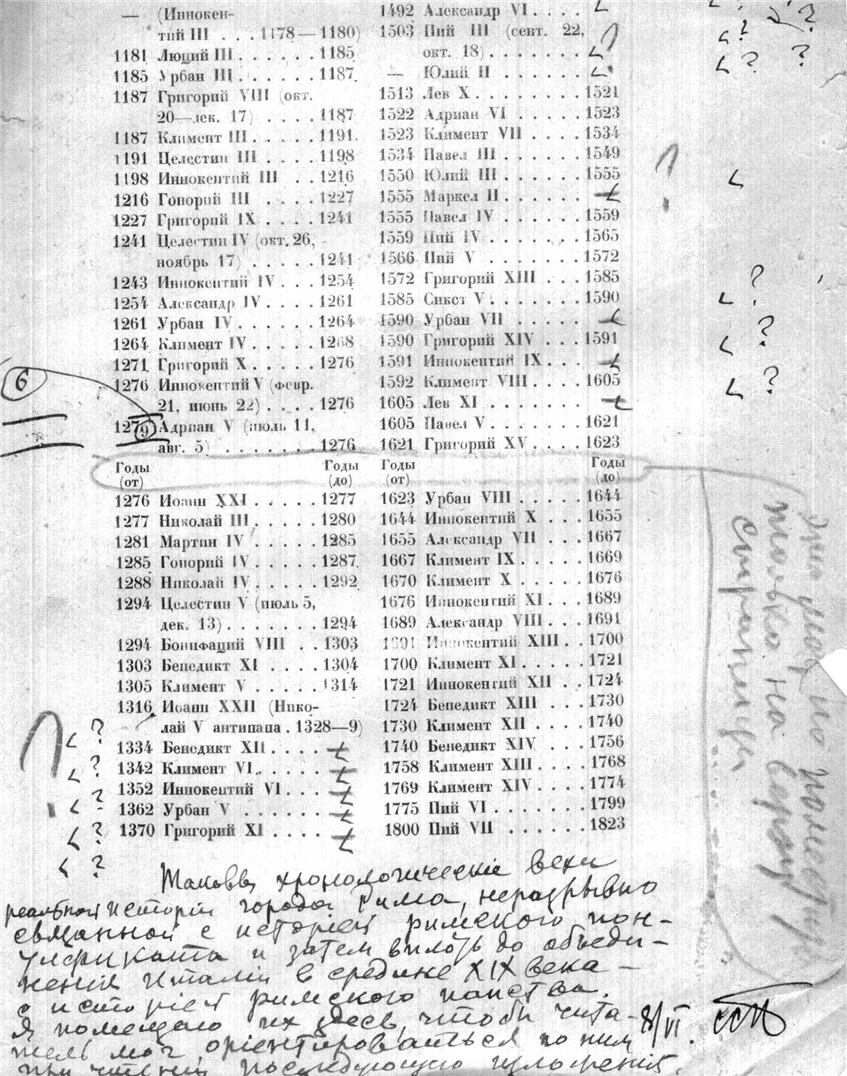 — (Иннокен-
тий III . . . 1178—1180)
1181 Люций III . . . . . . 1185
1185 Урбан III . . . . . . 1187
1187 Григорий VIII (окт.
20—дек. 17) . . . . . . 1187
1187 Климент III . . . . . 1191
1191 Целестин III . . . . 1198
1198 Иннокентий III . . . 1216
1216 Гонорий III . . . . . 1227
1227 Григорий IX . . . . . 1241
1241 Целестин IV (окт. 26,
ноябрь 17) . . . . . . 1241
1243 Иннокентий IV . . . . 1254
1254 Александр IV . . . . 1261
1261 Урбан IV . . . . . . . 1264
1264 Климент IV . . . . . 1268
1271 Григорий X . . . . . . 1276
1276 Иннокентий V (февр.
21, июнь 22) . . . . . 1276
6
1279 Адриан V (июль 11,
авг. 5) . . . . . . . . 1276
Годы (от) Годы (до)
1276 Иоанн XXI . . . . . . 1277
1277 Николай III . . . . . 1280
1281 Мартин IV . . . . . . 1285
1285 Гонорий IV . . . . . . 1287
1288 Николай IV . . . . . . 1292
1294 Целестин V (июль 5,
дек. 13) . . . . . . . . 1294
1294 Бонифаций VIII . . . 1303
1303 Бенедикт XI . . . . . 1304
1305 Климент V . . . . . . 1314
1316 Иоанн XXII (Нико-
лай V антипапа . 1328—9)
1334 Бенедикт XII . . . .
1342 Климент VI . . . . . .
1352 Иннокентий VI . . . .
1362 Урбан V . . . . . . .
1370 Григорий XI . . . . .
1492 Александр VI . . . .
1503 Пий III (сент. 22,
окт. 18) . . . . . . .
— Юлий II . . . . . . .
1513 Лев X . . . . . . . . 1521
1522 Адриан VI . . . . . . 1523
1523 Климент VII . . . . . 1534
1534 Павел III . . . . . . . 1549
1550 Юлий III . . . . . . . 1555
1555 Маркел II . . . . . .
1555 Павел IV . . . . . . . 1559
1559 Пий IV . . . . . . . . 1565
1566 Пий V . . . . . . . . 1572
1572 Григорий XIII . . . . 1585
1585 Сикст V . . . . . . . . 1590
1590 Урбан VII . . . . . .
1590 Григорий XIV . . . . 1591
1591 Иннокентий IX . . . .
1592 Климент VIII . . . . 1605
1605 Лев XI . . . . . . . .
1605 Павел V . . . . . . . . 1621
1621 Григорий XV . . . . . 1623
Годы (от) Годы (до)
1623 Урбан VIII . . . . . . 1644
1644 Иннокентий X . . . . 1655
1655 Александр VII . . . . 1667
1667 Климент IX . . . . . . 1669
1670 Климент X . . . . . . 1676
1676 Иннокентий XI . . . . 1689
1689 Александр VIII . . . . 1691
1691 Иннокентий XIII . . . 1700
1700 Климент XI . . . . . . 1721
1721 Иннокентий XII . . . . 1724
1724 Бенедикт XIII . . . . 1730
1730 Климент XII . . . . . 1740
1740 Бенедикт XIV . . . . 1756
1758 Климент XIII . . . . . 1768
1769 Климент XIV . . . . . 1774
1775 Пий VI . . . . . . . . 1799
1800 Пий VII . . . . . . . 1823
только на верху
страницы
Таковы хронологические вехи
реальной исторіи города Рима, неразрывно
связанной с исторіей римского пон-
тификата и затем вплоть до объеди-
ненія Италіи в средине XIX века —
с исторіей римского папства.
Я помещаю их здесь, чтобы чита-
тель мог оріентироваться по ним
при чтеніи последующаго изложенія.
8/VI.